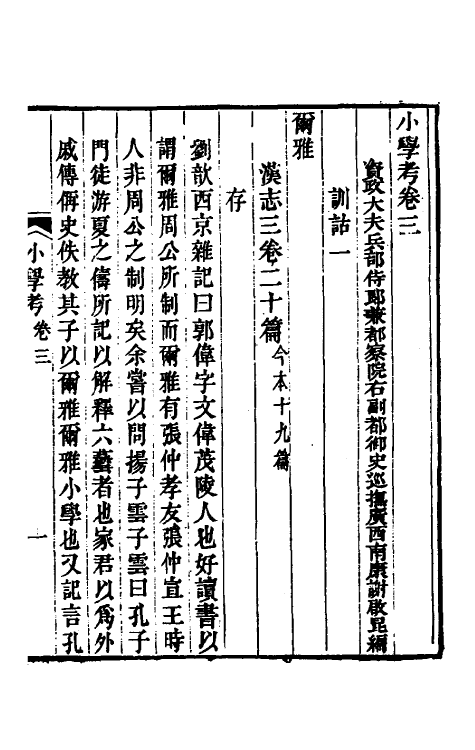 小學考卷三
資政大夫兵部侍郎兼都察院右副都御史巡撫廣西南康謝啟昆編
訓詁一
爾雅
漢志三卷二十篇今本十九篇
存
劉歆西京雜記曰郭偉字文偉茂陵人也好讀書以
謂爾雅周公所制而爾雅有張仲孝友張仲宣王時
人非周公之制明矣余嘗以問揚子雲子雲曰孔子
門徒游夏之儔所記以解釋六藝者也家君以爲外
戚傳偁史佚教其子以爾雅爾雅小學也又記言孔
小學考卷三
一